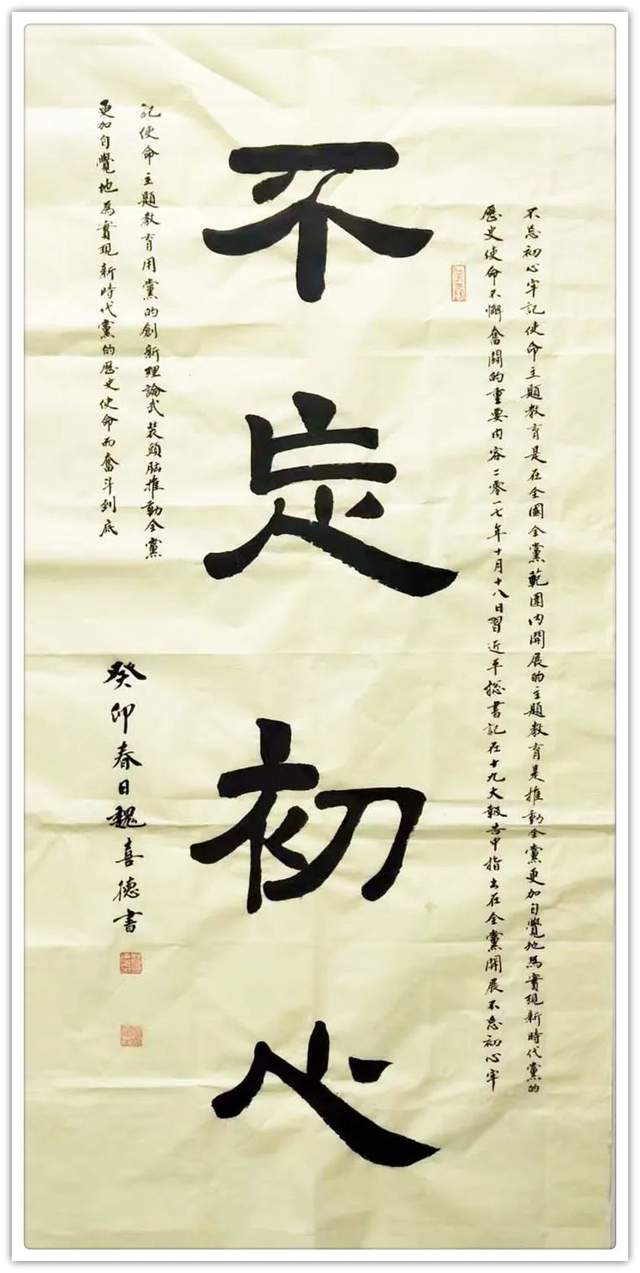 不忘初心
不忘初心牢記使命主題教育是在全國全黨範圍内開展的主題教育是推動全黨更加自覺地為實現新時代黨的
歷史使命不懈奮鬪的重要内容二零一七年十月十八日習近平總書記在十九大報告中指出在全黨開展不忘初心牢
記使命主題教育用黨的創新理論武裝頭腦推動全黨
更加自覺地為實現新時代黨的歷史使命而奮斗到底
癸卯春日魏喜德書